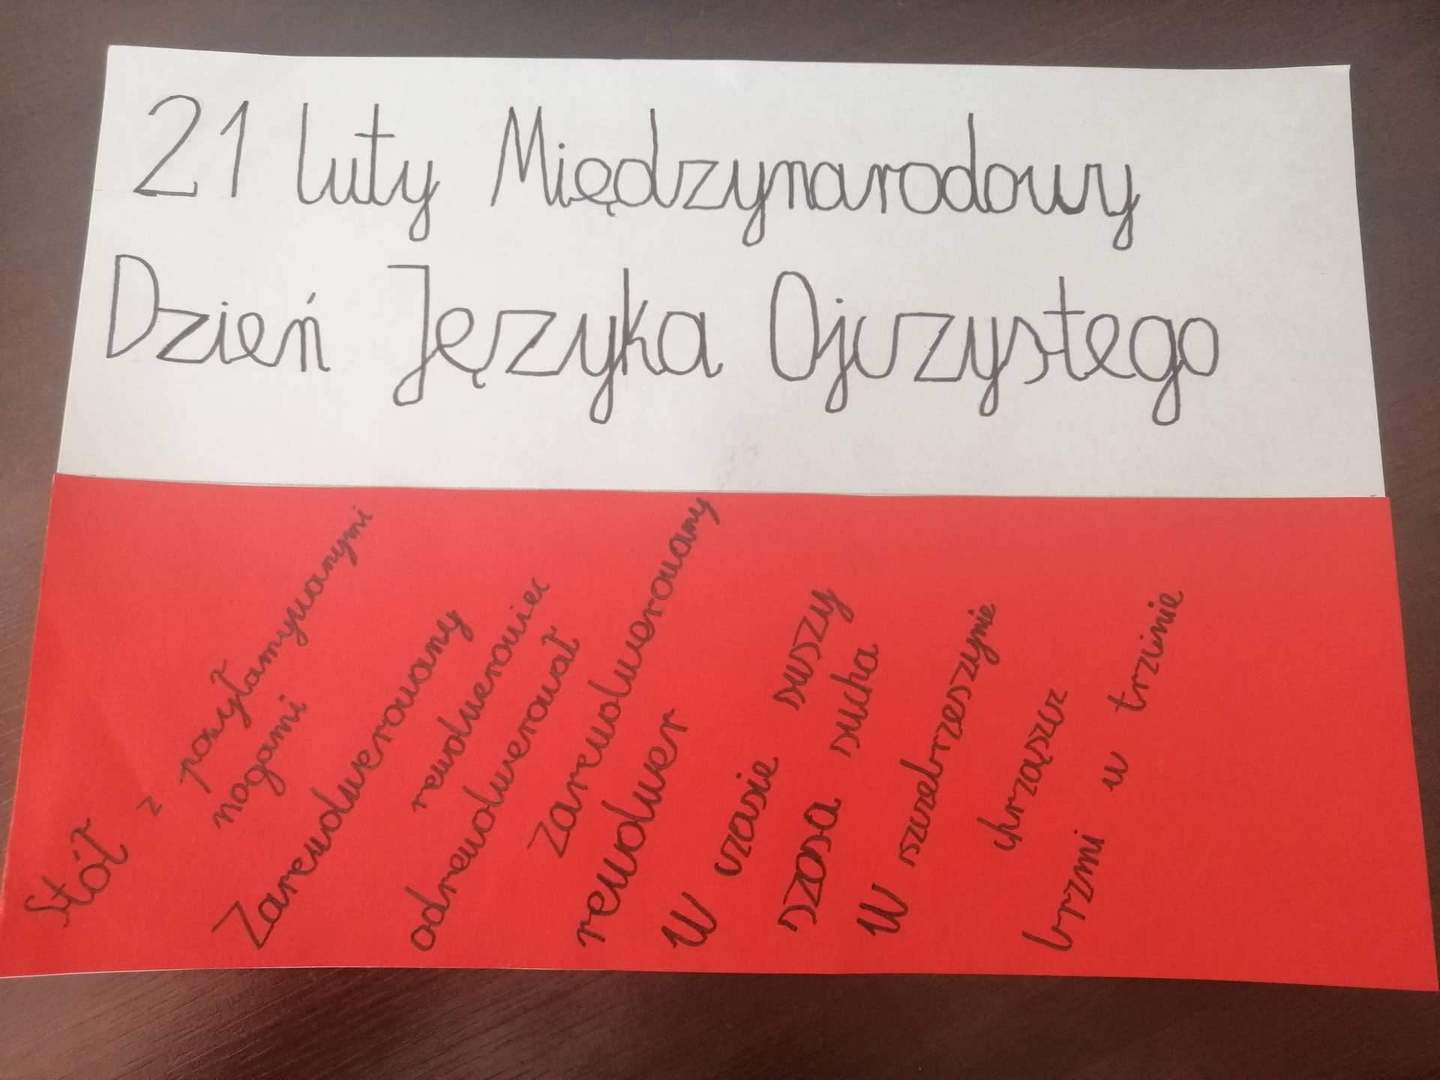 21 luty Międzynarodowy
Dzień Języka Ojczystego
Stół z powyłamywanymi
nogami
Zarewolwerowany
rewolwerowiec
odrewolwerował
zarewolwerowany
rewolwer
W czasie suszy
szosa sucha
W szczebrzeszynie
chrząszcz
brzmi w trzcinie